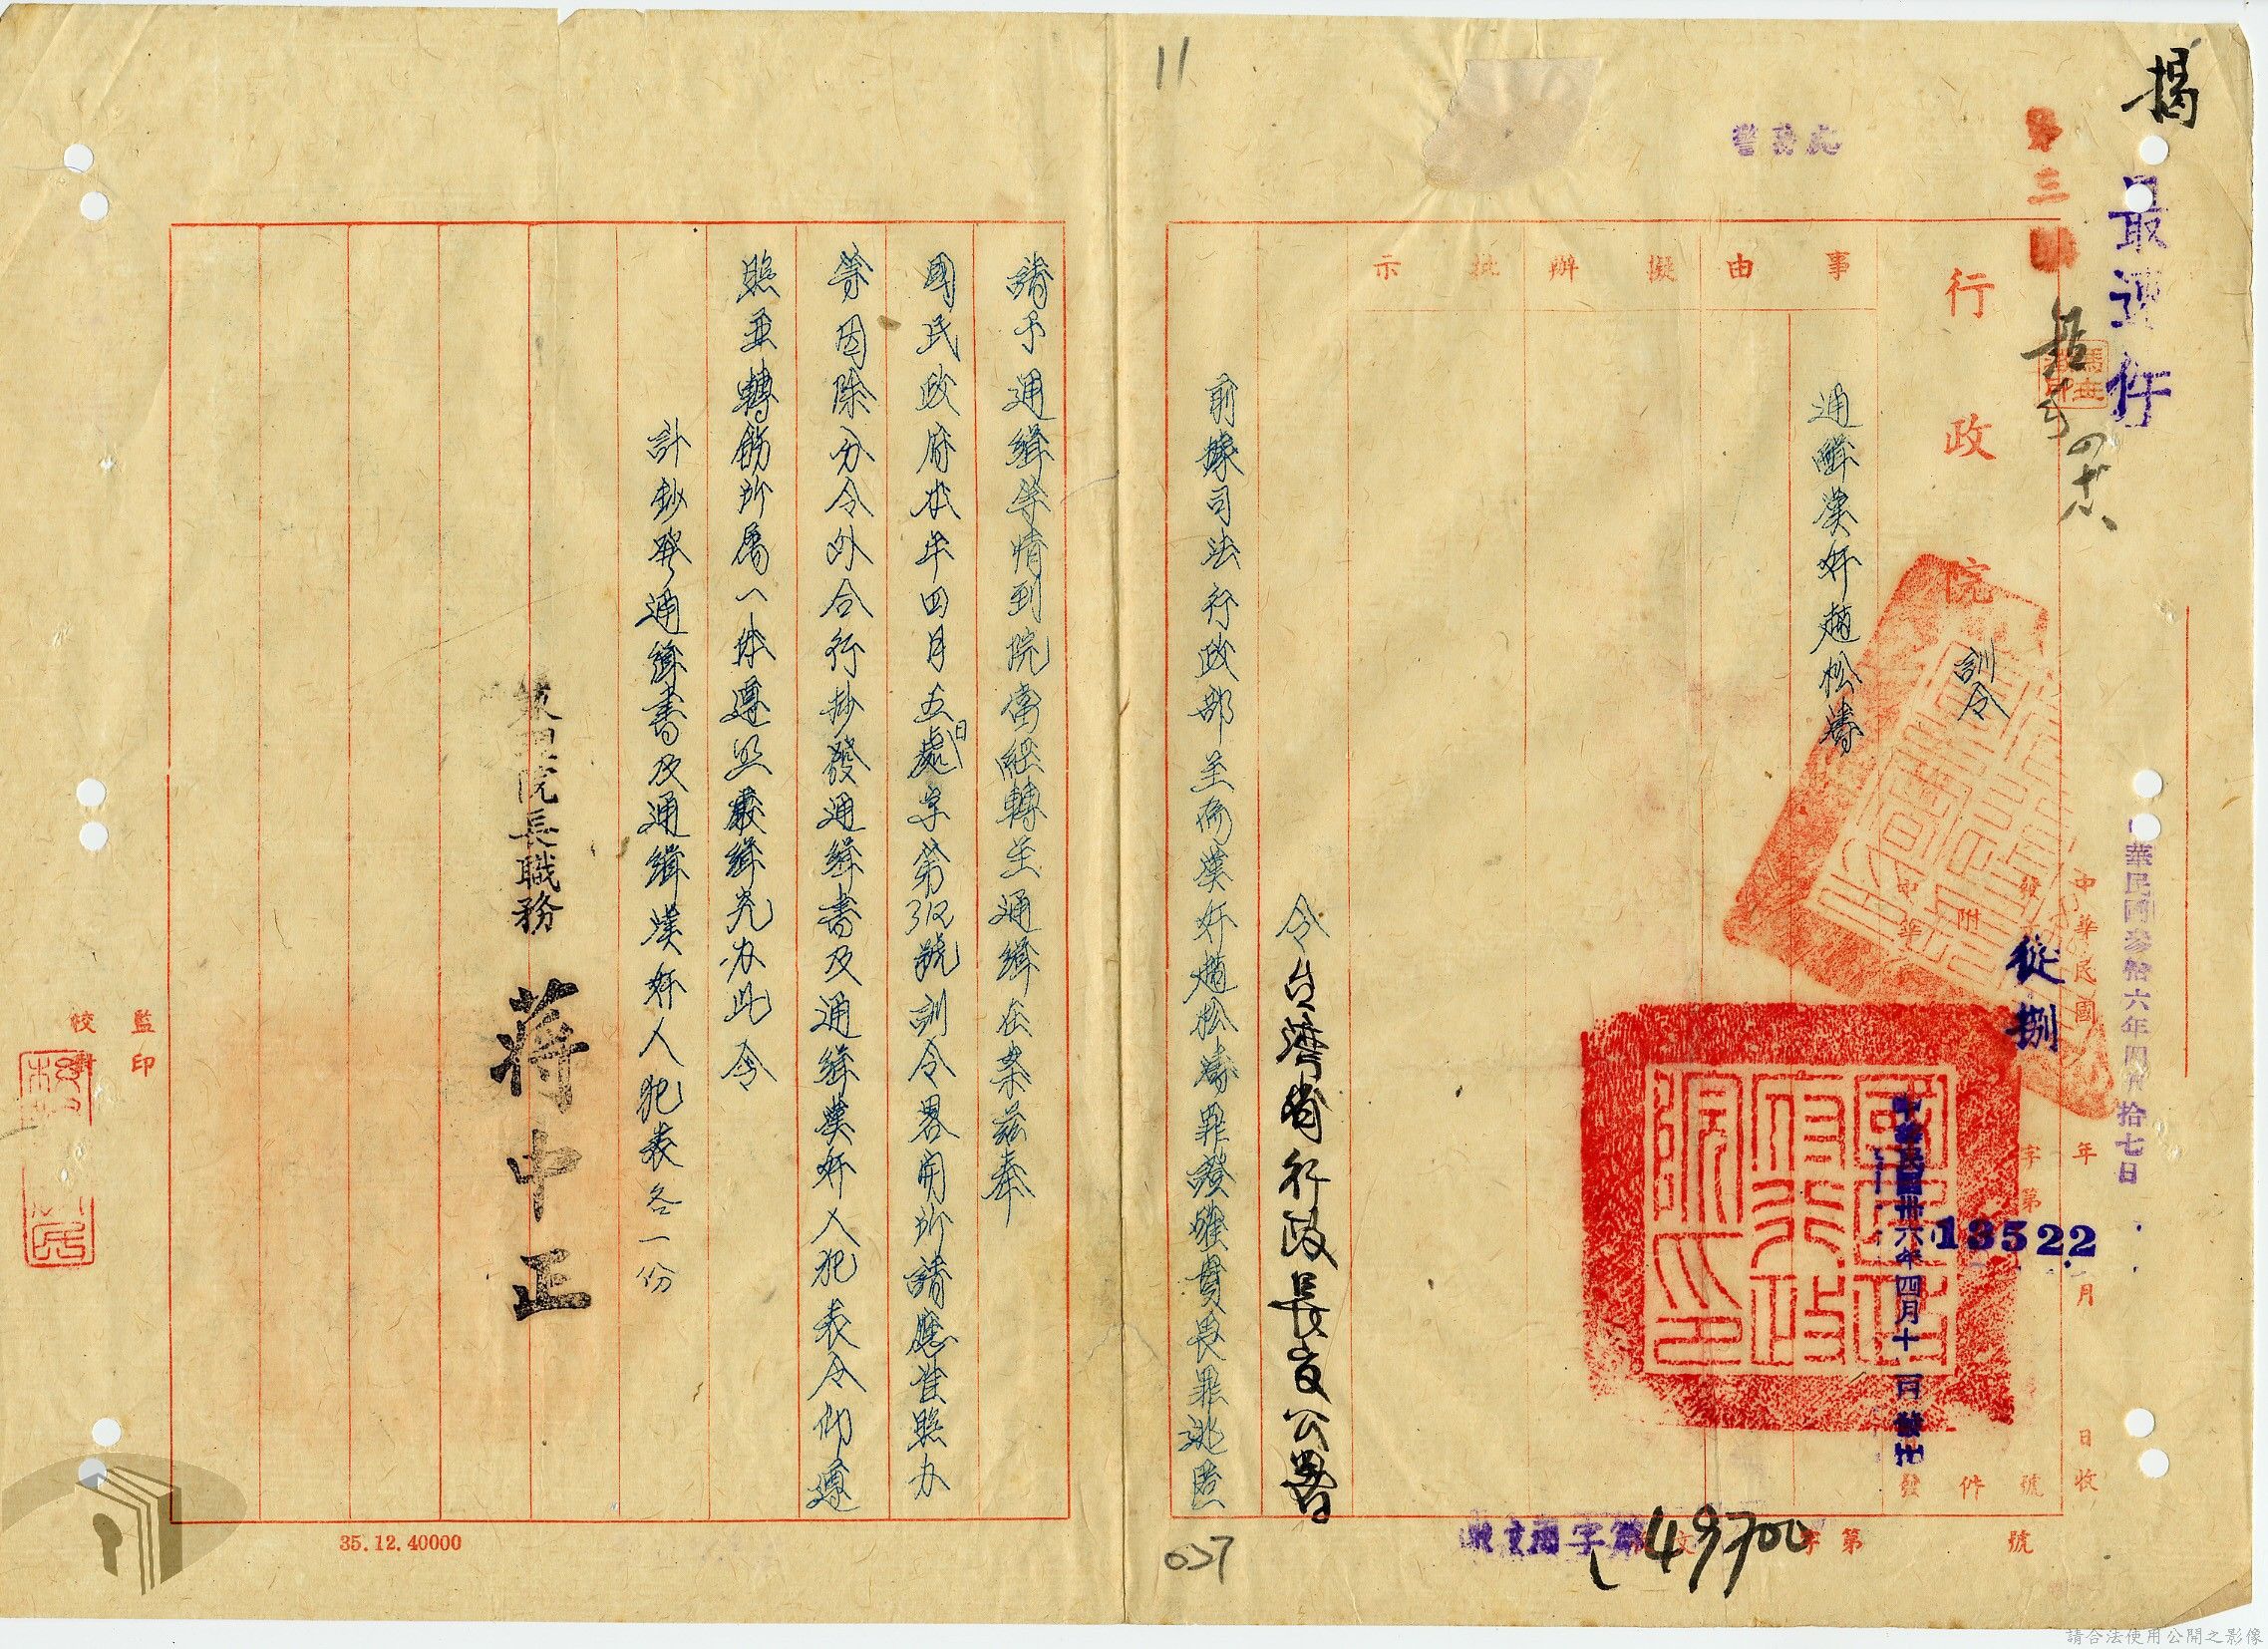 揭
最速件
第三
中華民國參拾六年四月拾七日
行政院
訓令
從捌
13522
中華民國 年 月 日收
發 字第 號
附 件
中華民國卅六年四月十一日
警務處
事由
擬辦
批示
通緝漢奸趙松濤
令台灣省行政長官公署
前據司法行政部呈為漢奸趙松濤罪證確實畏罪逃匿
請予通緝等情到院當經轉呈通緝在案茲奉
國民政府本年四月五日處字第312號訓令畧開所請應准照办
等因除分令外合行抄發通緝書及通緝漢奸人犯表令仰遵
照並轉飭所屬一体遵照嚴緝究办此令
計鈔發通緝書及通緝漢奸人犯表各一份
院長職務 蔣中正
監印
校對
收文 字第 49700 號
11
037
35.12.40000
國民政府行政院印
請合法使用公開之影像